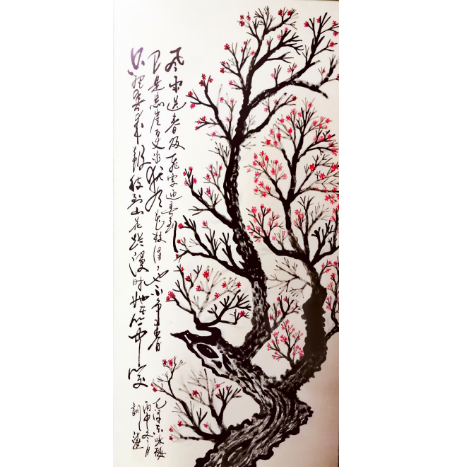 风雨送春归飞雪迎春到
已是悬崖百丈冰犹有花枝俏俏也不争春
只把春来报待到山花烂漫时她在丛中笑
毛泽东咏梅
丙申冬月